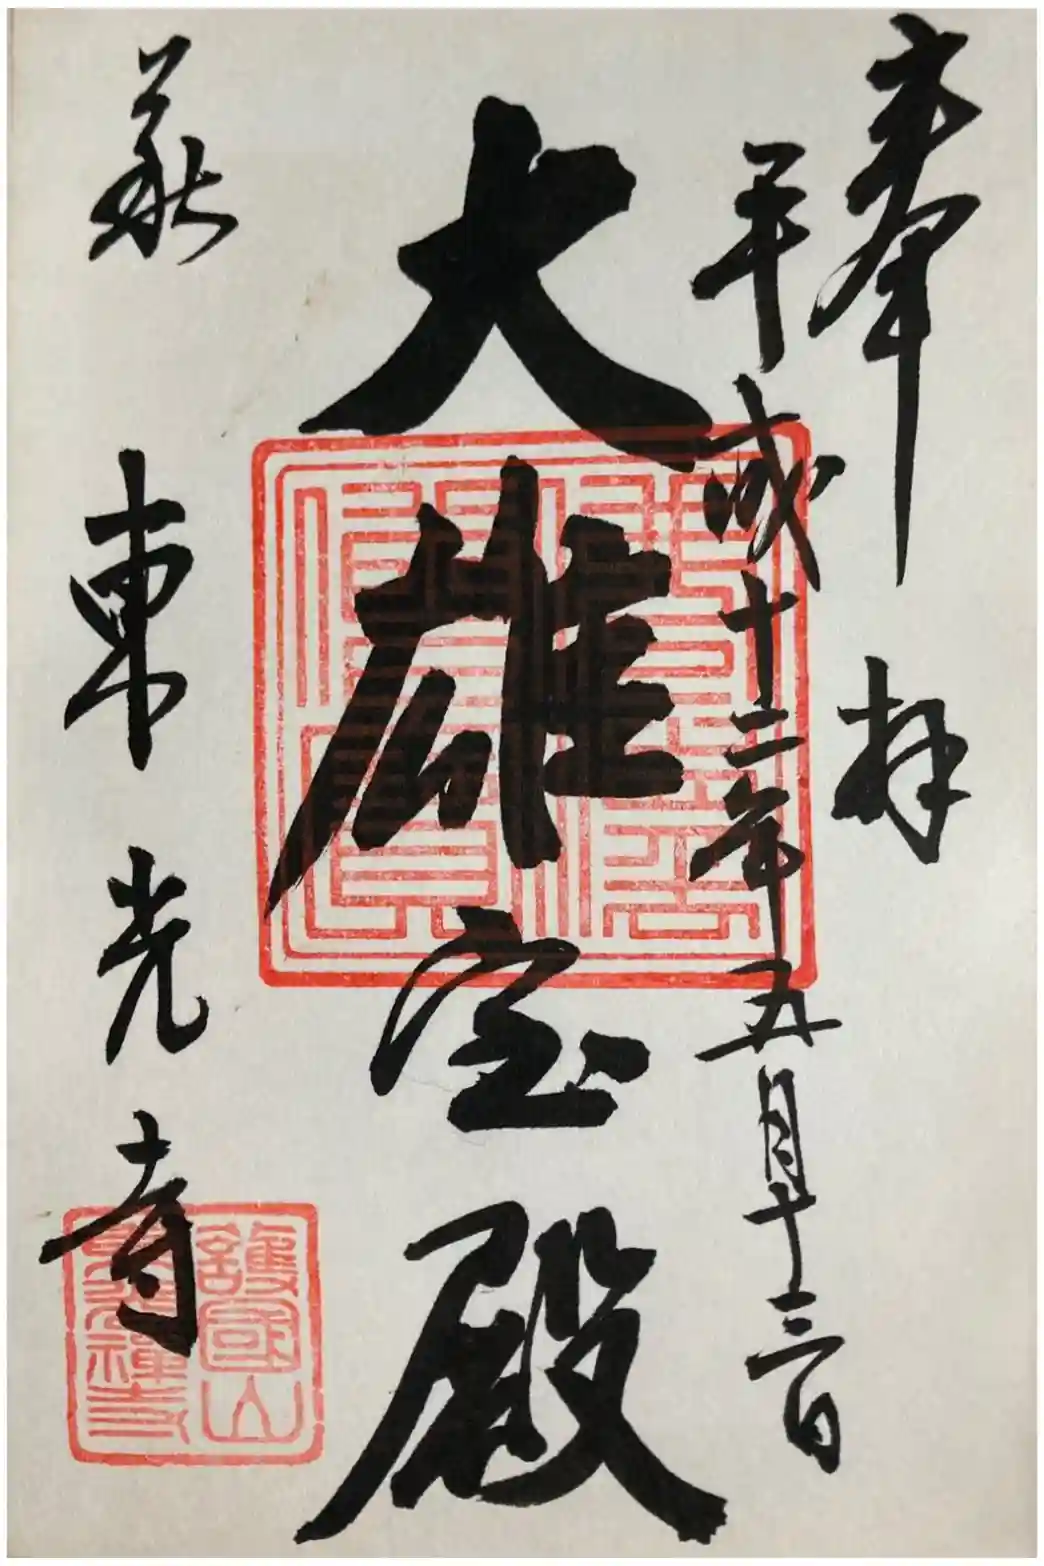 奉拝
平成十二年五月十三日
大雄宝殿
萩
東光寺
護國山
東光禅寺